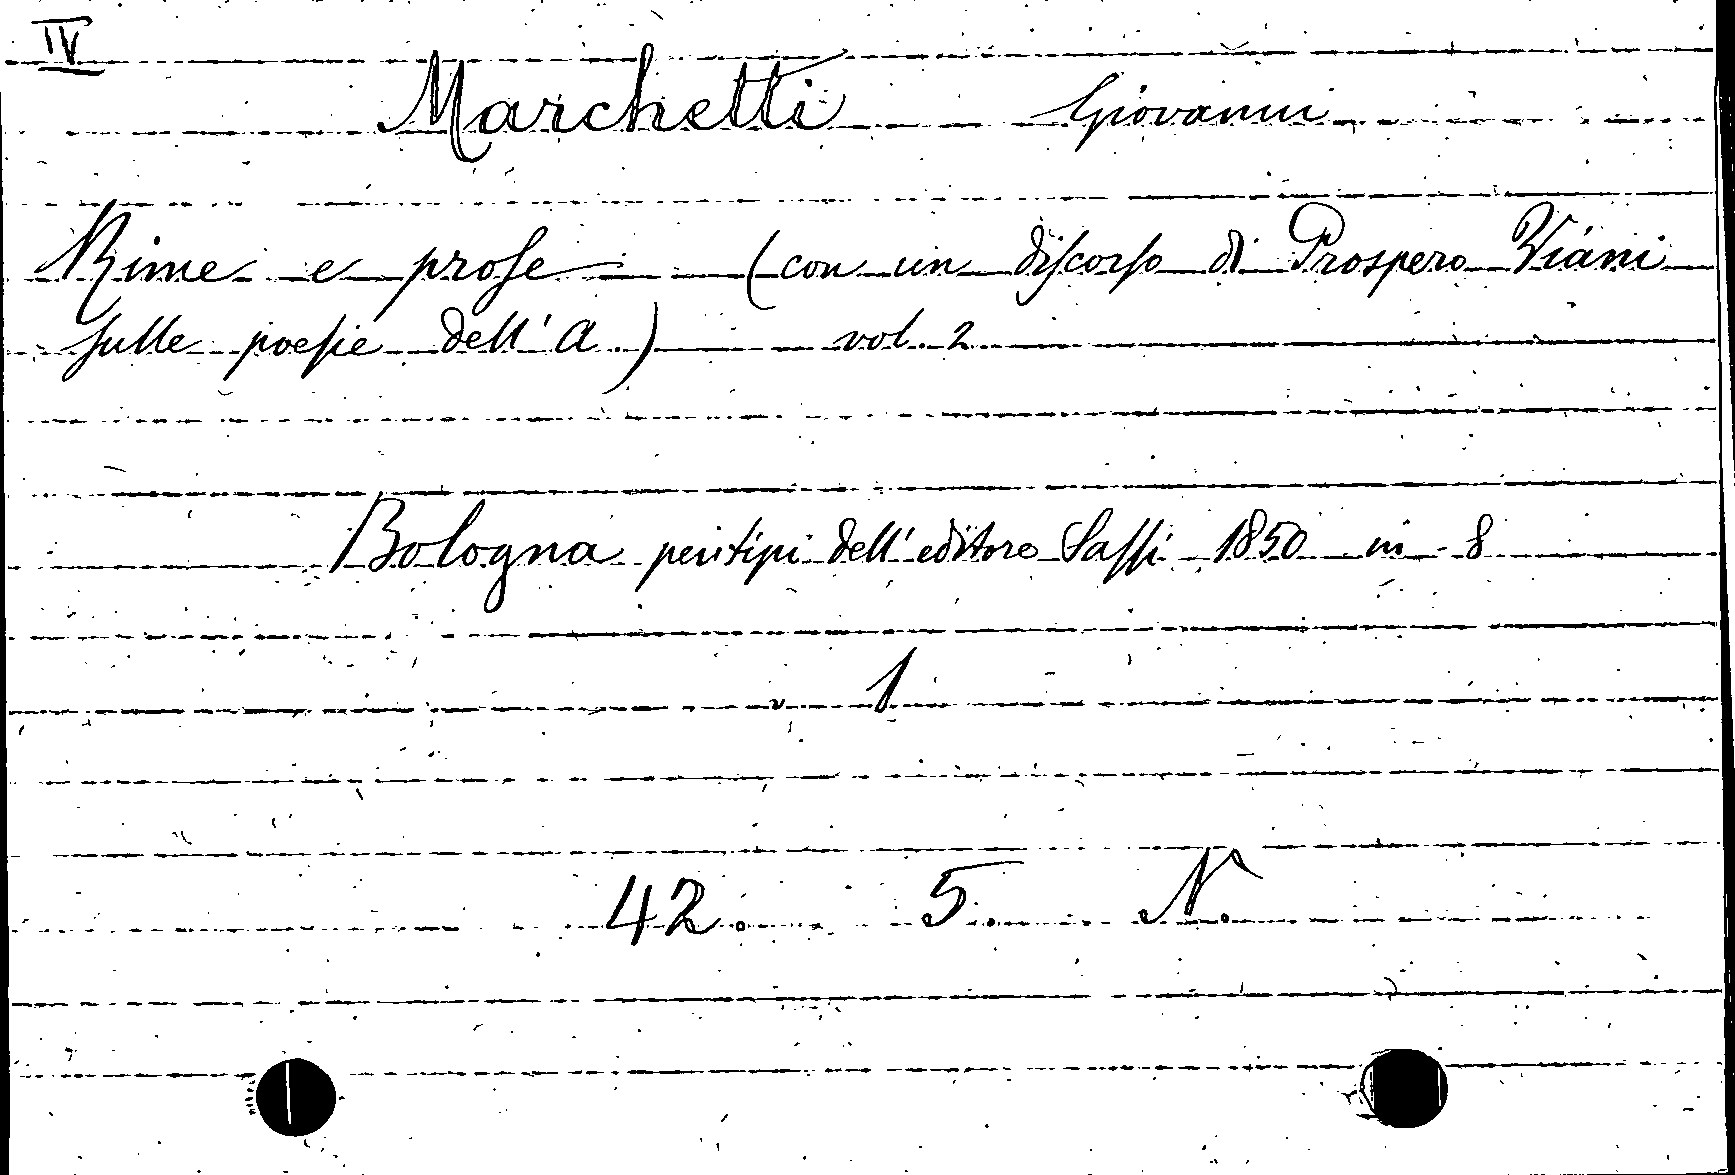 IV
Marchetti Giovanni
Rime e prose (con un discorso di Prospero Viani
sulle poesie dell'A.) vol. 2
Bologna pei tipi dell'editore Sassi 1850 in 8
1
42. 5. N.